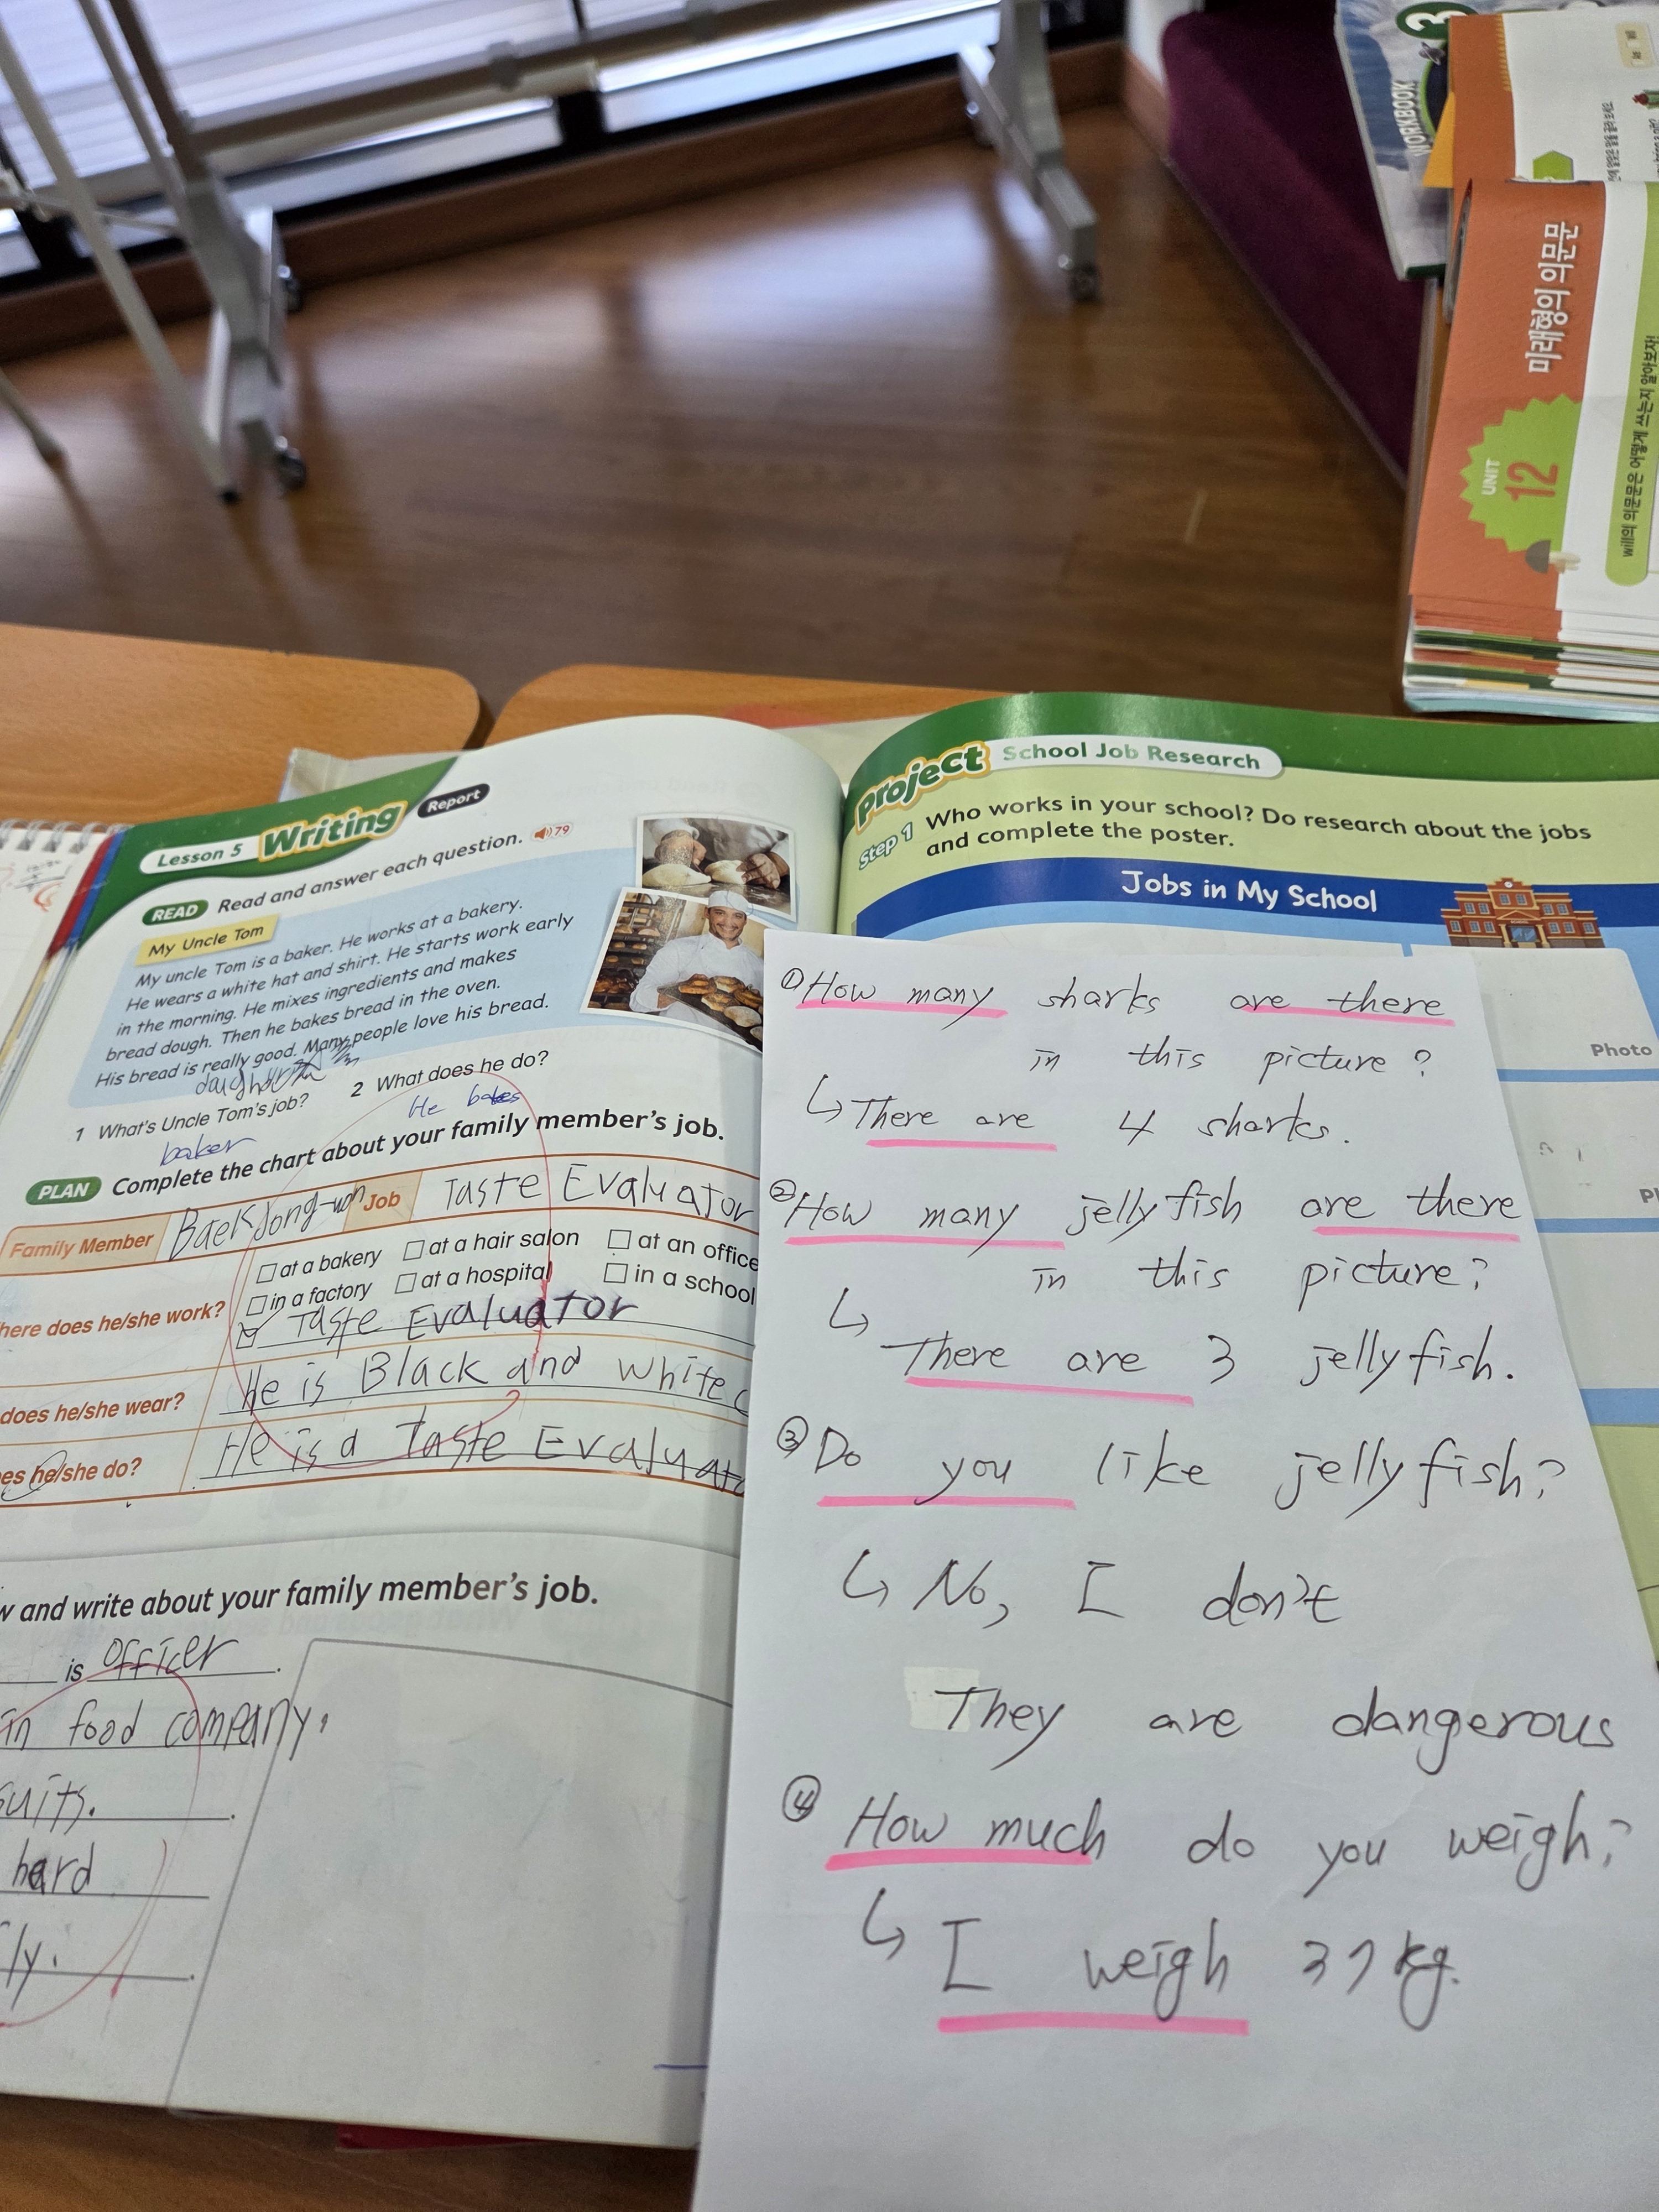 WORKBOOK
3
미래형의 의문문
UNIT
12
will의 의문문은 어떻게 쓰는지 알아보자!
Lesson 5 Writing Report
READ Read and answer each question. 79
My Uncle Tom
My uncle Tom is a baker. He works at a bakery.
He wears a white hat and shirt. He starts work early
in the morning. He mixes ingredients and makes
bread dough. Then he bakes bread in the oven.
His bread is really good. Many people love his bread.
1 What's Uncle Tom's job?
baker
2 What does he do?
He bakes
PLAN Complete the chart about your family member's job.
Family Member Baek Jong-won Job Taste Evaluator
here does he/she work?
at a bakery at a hair salon at an office
in a factory at a hospital in a school
Taste Evaluator
does he/she wear? He is Black and white c
es he/she do? He is a Taste Evaluato
w and write about your family member's job.
is officer.
in food company.
suits.
hard
ly.
Project School Job Research
Step 1 Who works in your school? Do research about the jobs
and complete the poster.
Jobs in My School
Photo
① How many sharks are there
in this picture?
↳ There are 4 sharks.
② How many jellyfish are there
in this picture?
↳ There are 3 jellyfish.
③ Do you like jellyfish?
↳ No, I don't
They are dangerous
④ How much do you weigh?
↳ I weigh 37 kg.